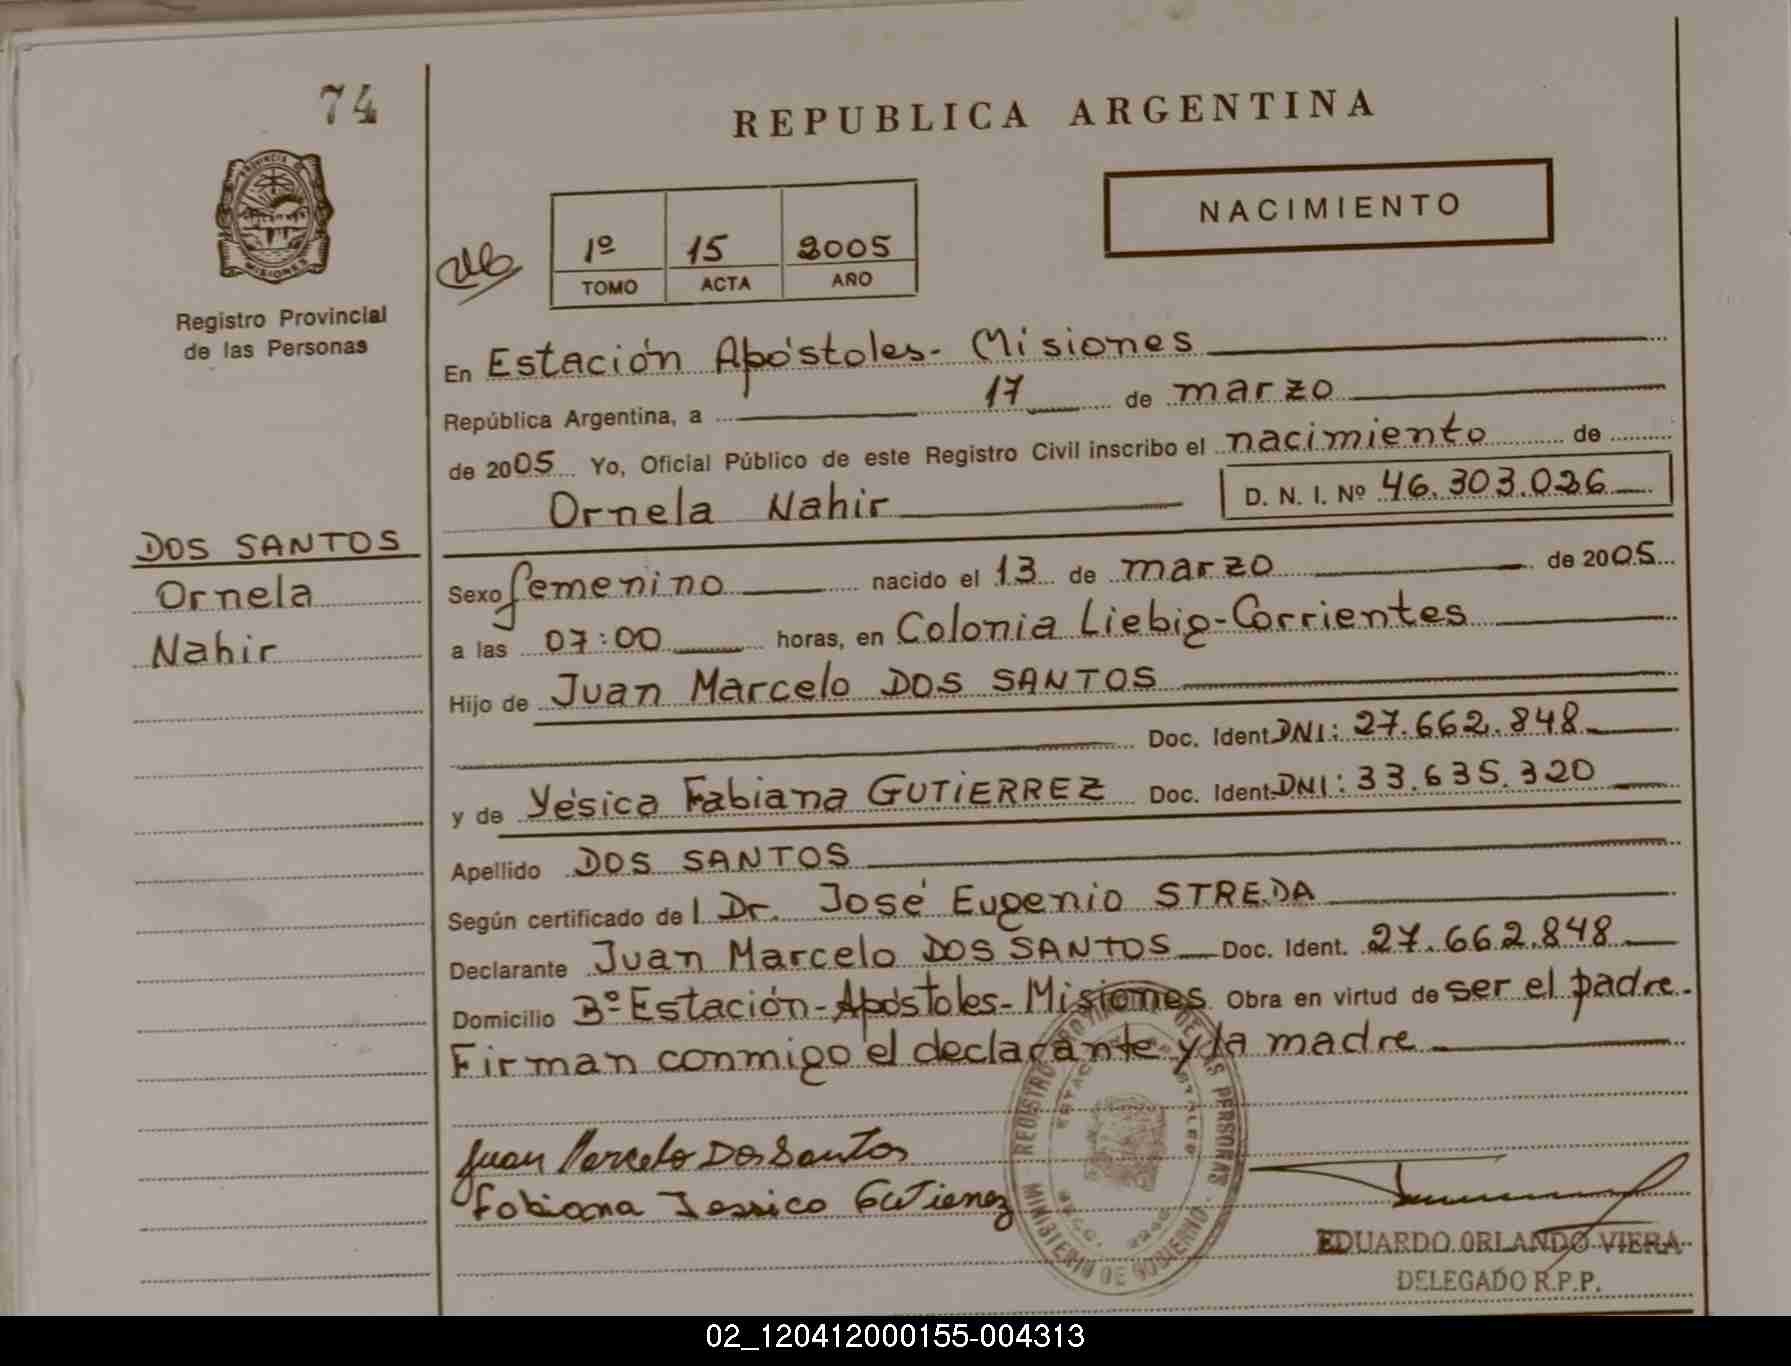 74
REPUBLICA ARGENTINA
NACIMIENTO
PROVINCIA DE
MISIONES
Registro Provincial
de las Personas
1º 15 2005
TOMO ACTA AÑO
En Estación Apóstoles- Misiones
República Argentina, a 17 de marzo
de 2005 Yo, Oficial Público de este Registro Civil inscribo el nacimiento de
Ornela Nahir D. N. I. Nº 46.303.026
DOS SANTOS
Ornela
Nahir
Sexo femenino nacido el 13 de marzo de 2005
a las 07:00 horas, en Colonia Liebig-Corrientes
Hijo de Juan Marcelo DOS SANTOS
Doc. Ident. DNI: 27.662.848
y de Yésica Fabiana GUTIERREZ Doc. Ident. DNI: 33.635.320
Apellido DOS SANTOS
Según certificado del Dr. José Eugenio STREDA
Declarante Juan Marcelo DOS SANTOS Doc. Ident. 27.662.848
Domicilio Bº Estación-Apóstoles-Misiones Obra en virtud de ser el padre.
Firman conmigo el declarante y la madre
Juan Marcelo Dos Santos
Fabiana Jessica Gutierrez
REGISTRO DE LAS PERSONAS
MINISTERIO DE GOBIERNO
EDUARDO ORLANDO VIERA
DELEGADO R.P.P.
02_120412000155-004313